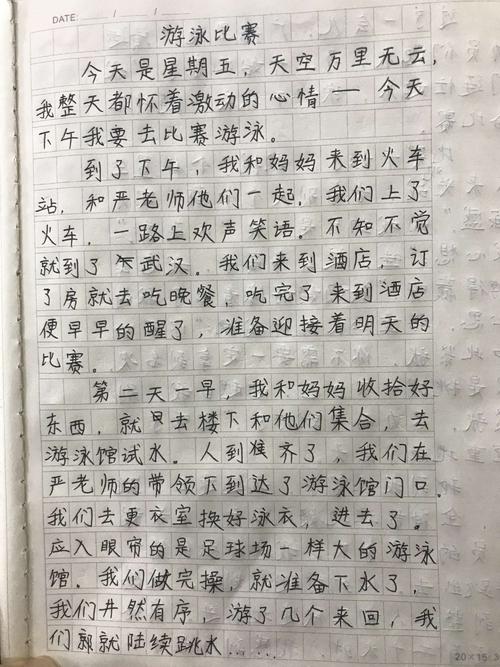 DATE: / /
游泳比赛
今天是星期五，天空万里无云，
我整天都怀着激动的心情——今天
下午我要去比赛游泳。
到了下午，我和妈妈来到火车
站，和严老师他们一起，我们上了
火车，一路上欢声笑语。不知不觉
就到了武汉。我们来到酒店，订
了房就去吃晚餐，吃完了来到酒店
便早早的醒了，准备迎接着明天的
比赛。
第二天一早，我和妈妈收拾好
东西，就早去楼下和他们集合，去
游泳馆试水。人到准齐了，我们在
严老师的带领下到达了游泳馆门口。
我们去更衣室换好泳衣，进去了。
应入眼帘的是足球场一样大的游泳
馆。我们做完操，就准备下水了，
我们井然有序，游了几个来回，我
们就陆续跳水……
20×15